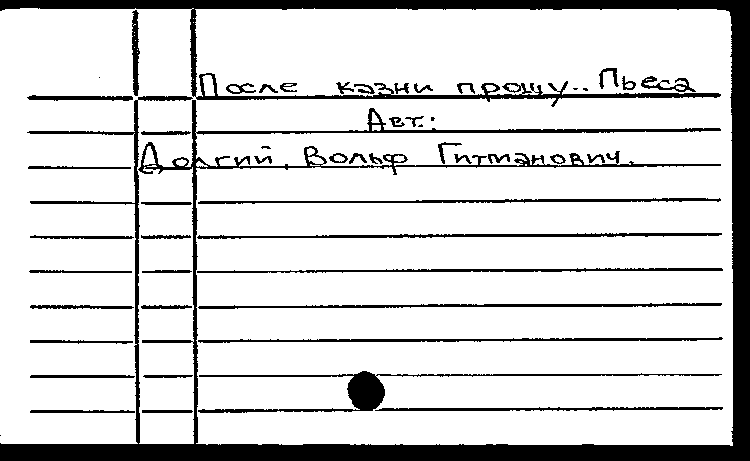 После казни прошу.. Пьеса
Авт.:
Долгий, Вольф Гитманович.